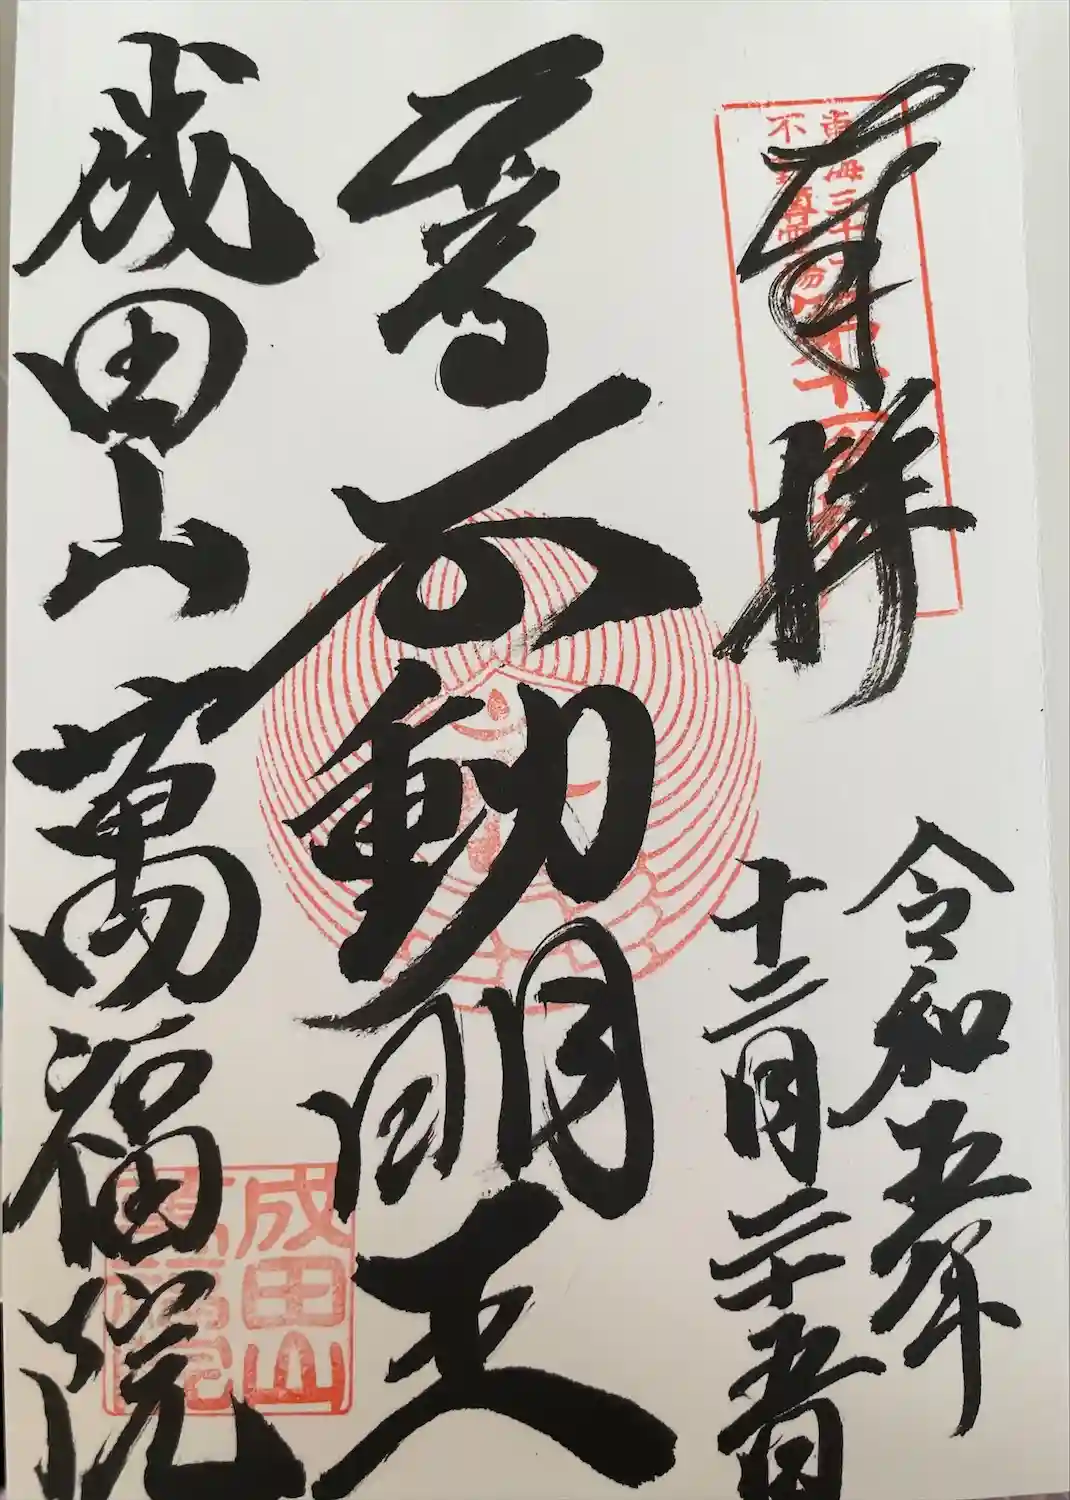 奉拝
東海三十六
不動尊霊場
令和五年
十二月二十五日
不動明王
成田山萬福院
成田山
萬福院